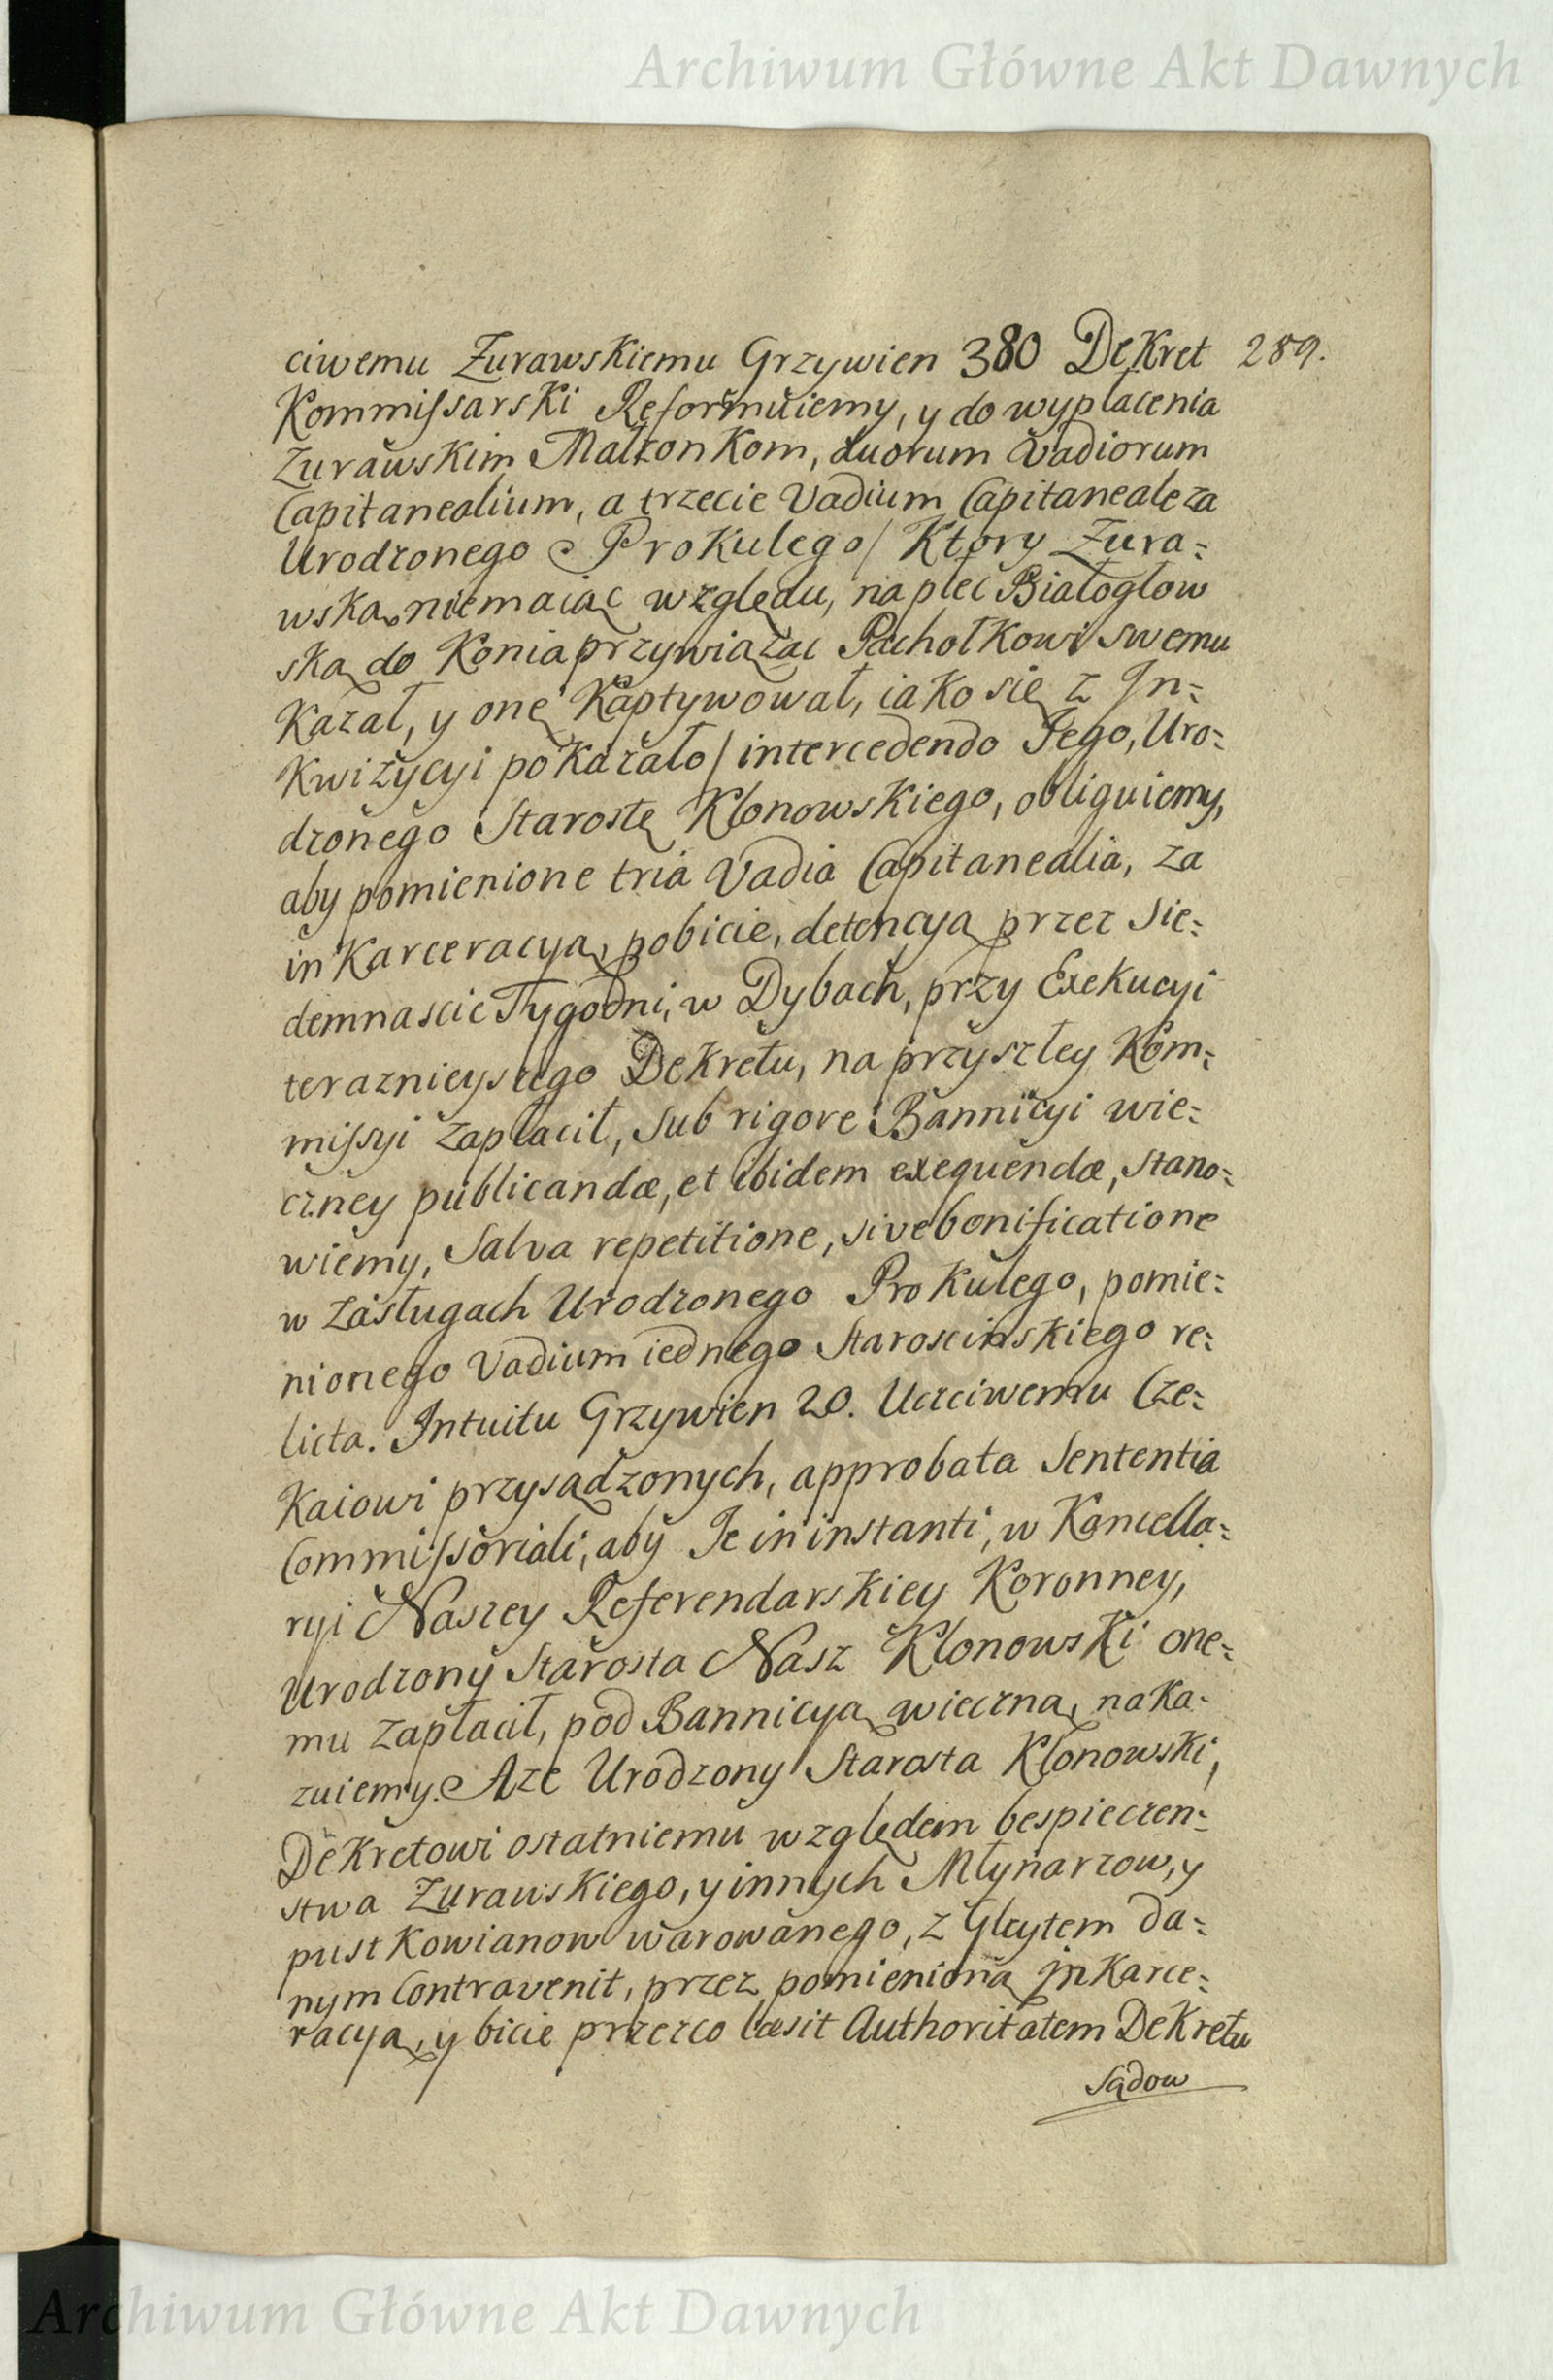 Archiwum Główne Akt Dawnych
ciwemu Zurawskiemu Grzywien 380 DeKret 289.
Kommissarski Reformuiemy, y do wypłacenia
Zurawskim Małzonkom, duorum Vadiorum
Capitanealium, a trzecie Vadium Capitaneale za
Urodzonego Prokulego / Ktory Zura=
wską niemaiąc względu, na płeć Białogłow
ską do Konia przywiązać Pachołkowi swemu
Kazał, y onę Kaptywował, iako się z In=
kwizycyi pokazało / intercedendo Jego, Uro=
dzonego Starostę Klonowskiego, obliguiemy,
aby pomienione tria Vadia Capitanealia, za
inkarceracyą, pobicie, detencyą przez Sie=
demnascie Tygodni, w Dybach, przy Exekucyi
teraznieyszego Dekretu, na przyszłey Kom=
missyi zapłacił, sub rigore Bannicyi wie=
czney publicandæ, et ibidem exequendæ, stano=
wiemy, Salva repetitione, sive bonificatione
w zasługach Urodzonego Prokulego, pomie=
nionego Vadium iednego Staroscinskiego re=
licta. Intuitu Grzywien 20. Uczciwemu Cze=
kaiowi przysądzonych, approbata Sententia
Commissoriali, aby Je in instanti, w Kancella=
ryi Naszey Referendarskiey Koronney,
Urodzony Starosta Nasz Klonowski one=
mu zapłacił, pod Bannicyą wieczną, naka=
zuiemy. Aze Urodzony Starosta Klonowski,
Dekretowi ostatniemu względem bespieczen=
stwa Zurawskiego, y innych Młynarzow, y
pustkowianow warowanego, z Gleytem da=
nym Contravenit, przez pomienioną inkarce=
racyą, y bicie przezco læsit Authoritatem Dekretu
Sądow
Archiwum Główne Akt Dawnych